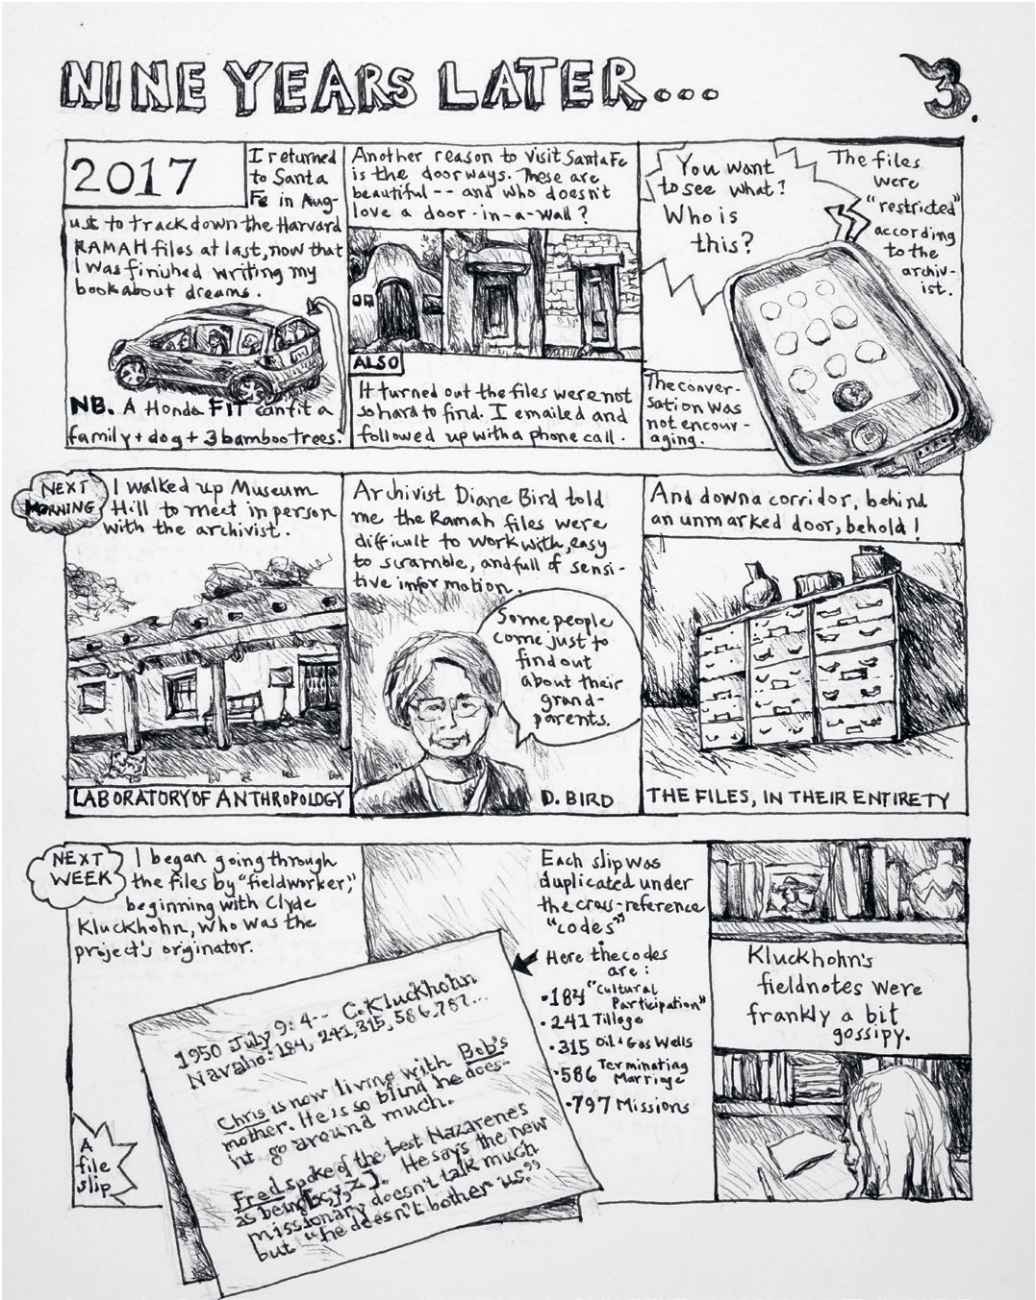 NINE YEARS LATER...
3.
2017
I returned
to Santa
Fe in Aug-
ust to track down the Harvard
RAMAH files at last, now that
I was finished writing my
book about dreams.
NB. A Honda FIT can fit a
family + dog + 3 bamboo trees.
Another reason to visit Santa Fe
is the doorways. These are
beautiful -- and who doesn't
love a door-in-a-wall?
ALSO
It turned out the files were not
so hard to find. I emailed and
followed up with a phone call.
You want
to see what?
Who is
this?
The files
were
"restricted"
according
to the
archiv-
ist.
The conver-
sation was
not encour-
aging.
NEXT
MORNING
I walked up Museum
Hill to meet in person
with the archivist.
LABORATORY OF ANTHROPOLOGY
Archivist Diane Bird told
me the Ramah files were
difficult to work with, easy
to scramble, and full of sensi-
tive information.
Some people
come just to
find out
about their
grand-
parents.
D. BIRD
And down a corridor, behind
an unmarked door, behold!
THE FILES, IN THEIR ENTIRETY
NEXT
WEEK
I began going through
the files by "fieldworker,"
beginning with Clyde
Kluckhohn, who was the
project's orginator.
A
file
slip
1950 July 9:4-- C. Kluckhohn
Navaho: 184, 241, 315, 586, 787...
Chris is now living with Bob's
mother. He is so blind he does-
n't go around much.
Fred spoke of the best Nazarenes
as being [x,y,z]. He says the new
missionary doesn't talk much
but "he doesn't bother us."
Each slip was
duplicated under
the cross-reference
"codes"
Here the codes
are:
•184 "Cultural
Participation"
•241 Tillage
•315 Oil & Gas Wells
•586 Terminating
Marriage
•797 Missions
Kluckhohn's
fieldnotes were
frankly a bit
gossipy.